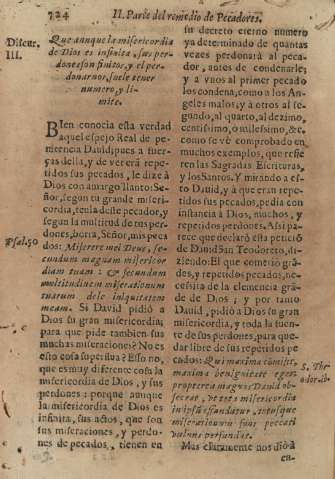 724 II. Parte del remedio de Pecadores.
Discur.
III.
Que aunque la misericordia
de Dios es infinita, sus per-
dones son finitos, y el per-
donarnos, suele tener
numero, y li-
mite.
BIen conocia esta verdad
aquel espejo Real de pe-
nitencia David, pues a fuer-
ças della, y de ver era repe-
tidos sus pecados, le dize à
Dios con amargo llanto: Se-
ñor, segun tu grande miseri-
cordia, ten la deste pecador, y
segun la multitud de tus per-
dones, borra, Señor, mis peca
Psal. 50
dos: Miserere mei Deus, se-
cundum magnam misericor-
diam tuam: & secundum
multitudinem miserationum
tuarum dele iniquitatem
meam. Si David pidiò a
Dios su gran misericordia;
para que pide tambien sus
muchas miseraciones? No es
esto cosa superflua? Esso no,
que es muy diferente cosa la
misericordia de Dios, y sus
perdones: porque aunque
la misericordia de Dios es
infinita, sus actos, que son
sus miseraciones, y perdo-
nes de pecados, tienen en
su decreto eterno numero
ya determinado de quantas
vezes perdonarà al peca-
dor, antes de condenarle;
y a vnos al primer pecado
los condena, como a los An-
geles malos, y à otros al se-
gundo, al quarto, al dezimo,
centissimo, o milessimo, &c.
como se vè comprobado en
muchos exemplos, que refie
ren las Sagradas Escrituras,
y los Santos. Y mirando a es-
to David, y à que eran repe-
tidos sus pecados, pedia con
instancia à Dios, muchos, y
repetidos perdones. Assi pa-
rece que declarò esta peticiō
de David San Teodoreto, di-
ziendo: El que cometiò grā-
des, y repetidos pecados, ne-
cessita de la clemencia grā-
de de Dios; y por tanto
David, pidiò a Dios su gran
misericordia, y toda la fuen-
te de sus perdones, para que-
dar libre de sus repetidos pe
cados: Qui maxima comisit,
S. The
odor. ib.
maxima benignitate eget:
propterea magnus David ob-
secrat, ut tota misericordia
in ipsū effundatur, totusque
miserationum fons peccati
vulnus perfundat.
Mas claramente nos diò à
en-